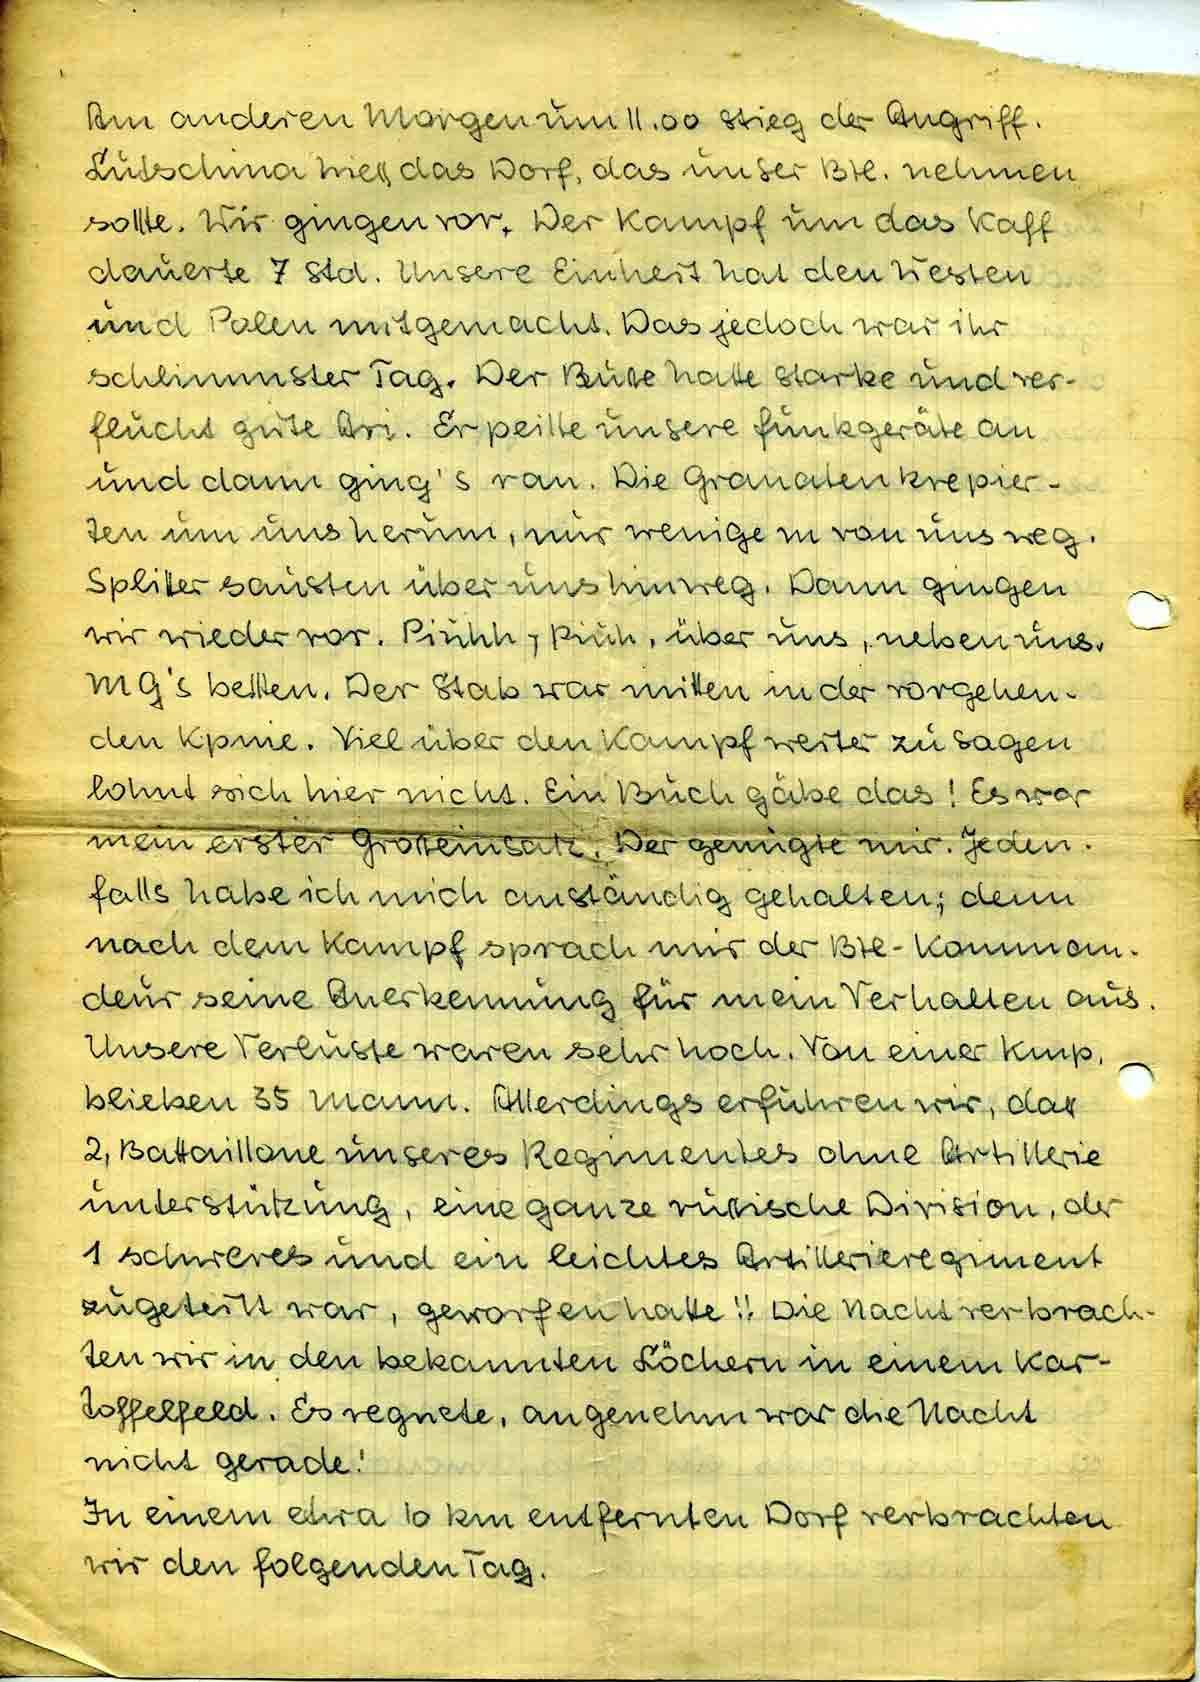 Am anderen Morgen um 11.00 stieg der Angriff.
Lutschina hieß das Dorf, das unser Btl. nehmen
sollte. Wir gingen vor. Der Kampf um das Kaff
dauerte 7 Std. Unsere Einheit hat den Westen
und Polen mitgemacht. Das jedoch war ihr
schlimmster Tag. Der Russe hatte starke und ver-
flucht gute Ari. Er peilte unsere Funkgeräte an
und dann ging's ran. Die Granaten krepier-
ten um uns herum, nur wenige m von uns weg.
Splitter sausten über uns hinweg. Dann gingen
wir wieder vor. Piuhh, piuh, über uns, neben uns.
MG's bellten. Der Stab war mitten in der vorgehen-
den Kpnie. Viel über den Kampf weiter zu sagen
lohnt sich hier nicht. Ein Buch gäbe das! Es war
mein erster Großeinsatz. Der genügte mir. Jeden-
falls habe ich mich anständig gehalten; denn
nach dem Kampf sprach mir der Btl-Komman-
deur seine Anerkennung für mein Verhalten aus.
Unsere Verluste waren sehr hoch. Von einer Kmp.
blieben 35 Mann. Allerdings erfuhren wir, daß
2, Battaillone unseres Regimentes ohne Artillerie
unterstützung, eine ganze rußische Division, der
1 schweres und ein leichtes Artillerieregiment
zugeteilt war, geworfen hatte!! Die Nacht verbrach-
ten wir in den bekannten Löchern in einem Kar-
toffelfeld. Es regnete, angenehm war die Nacht
nicht gerade!
In einem etwa 10 km entfernten Dorf verbrachten
wir den folgenden Tag.